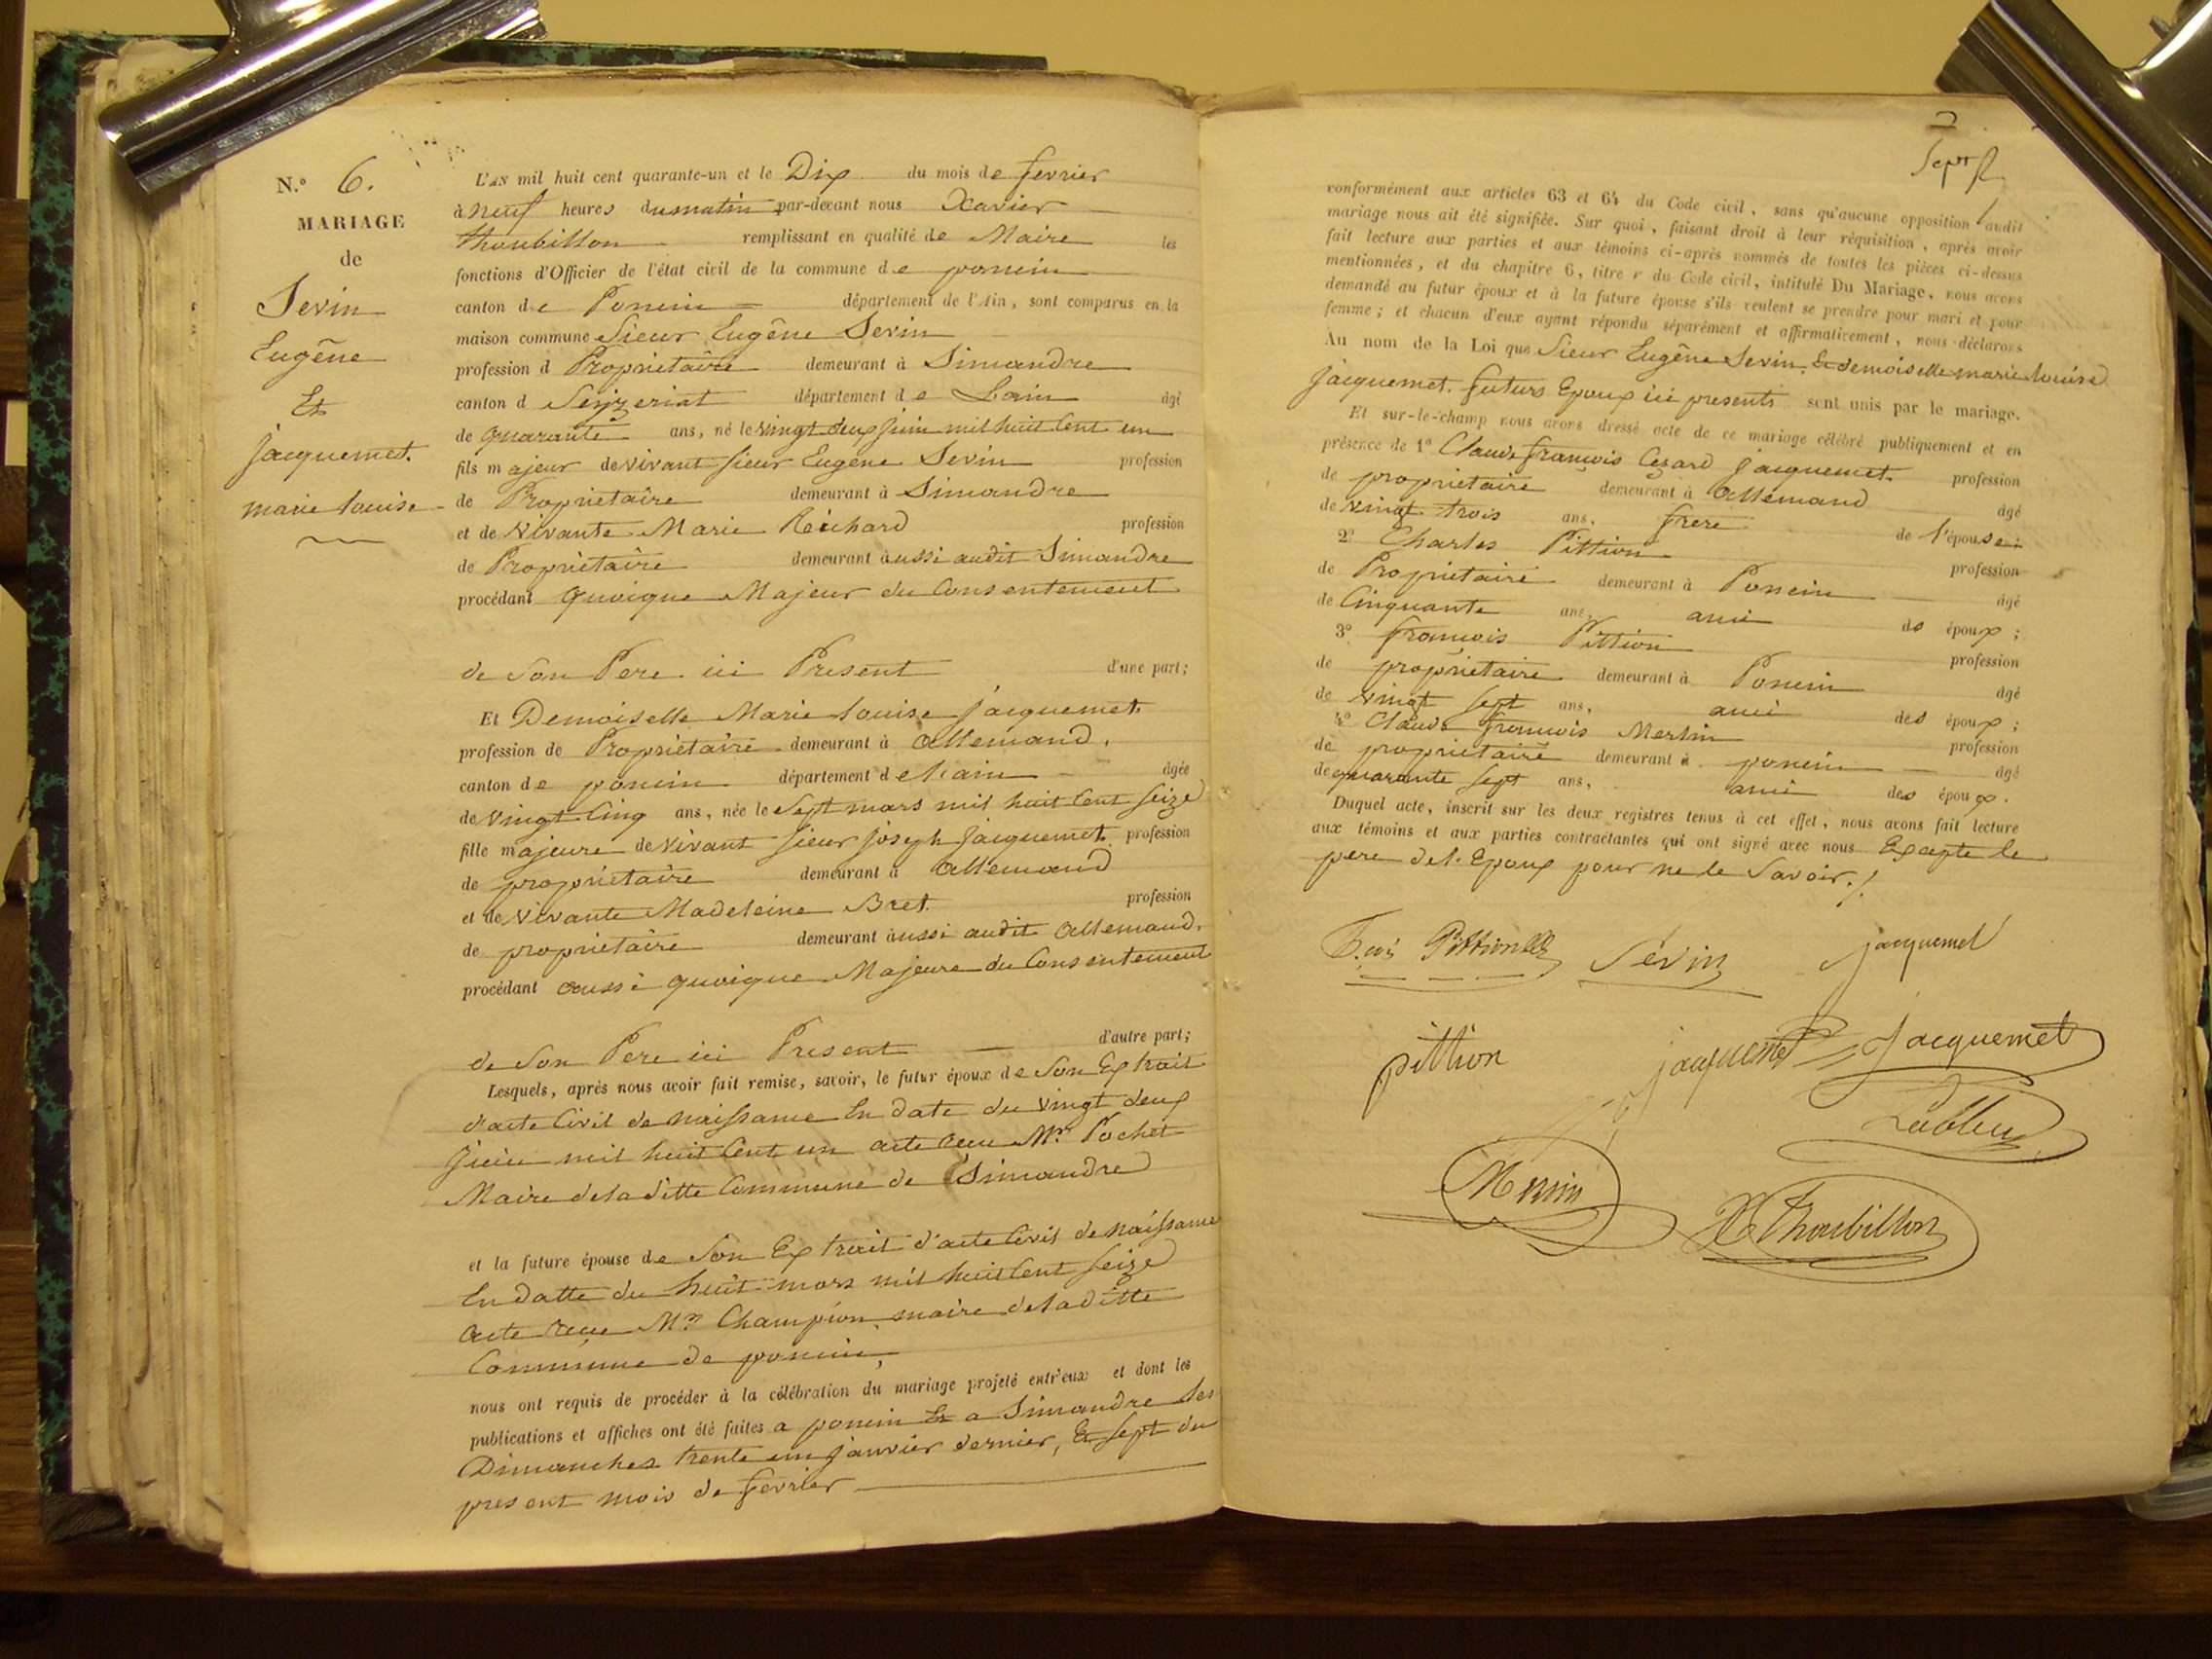 N.º 6.
MARIAGE
de
Sevin
Eugêne
Et
jacquemet.
marie Louise
L'AN mil huit cent quarante-un et le Dix du mois de fevrier
à neuf heures du matin par-devant nous Xavier
thoubillon remplissant en qualité de Maire les
fonctions d'Officier de l'état civil de la commune de poncin
canton de Poncin département de l'Ain, sont comparus en la
maison commune Sieur Eugêne Sevin
profession d Propriétaire demeurant à Simandre
canton d Seyzeriat département de Lain âgé
de quarante ans, né le vingt deux juin mil huit Cent un
fils majeur de vivant sieur Eugene Sevin profession
de Propriétaire demeurant à Simandre
et de vivante Marie Reichard profession
de Propriétaire demeurant aussi audit Simandre
procédant quoique Majeur du Consentement
de Son Pere ici Present d'une part;
Et Demoiselle Marie Louise jacquemet
profession de Propriétaire demeurant à allemand.
canton de poncin département de Lain âgée
de vingt Cinq ans, née le Sept mars mil huit Cent Seize
fille majeure de vivant sieur joseph jacquemet profession
de propriétaire demeurant à allemand
et de vivante Madeleine Bret. profession
de propriétaire demeurant aussi audit allemand.
procédant aussi quoique Majeure du Consentement
de Son Pere ici Present d'autre part;
Lesquels, après nous avoir fait remise, savoir, le futur époux de Son Extrait
d'acte Civil de naissance En date du vingt deux
juin mil huit Cent un acte recu Mr. Pochet
Maire de la ditte Commune de Simandre
et la future épouse de Son Extrait d'acte Civil de naissance
En datte du huit mars mil huit Cent Seize
acte recu Mr. Champion maire de la ditte
Commune de poncin,
nous ont requis de procéder à la célébration du mariage projeté entr'eux et dont les
publications et affiches ont été faites a poncin Et a Simandre les
Dimanches trente un janvier dernier, Et Sept du
present mois de fevrier
7
Sept
conformément aux articles 63 et 64 du Code civil, sans qu'aucune opposition audit
mariage nous ait été signifiée. Sur quoi, faisant droit à leur réquisition, après avoir
fait lecture aux parties et aux témoins ci-après nommés de toutes les pièces ci-dessus
mentionnées, et du chapitre 6, titre v du Code civil, intitulé Du Mariage, nous avons
demandé au futur époux et à la future épouse s'ils veulent se prendre pour mari et pour
femme; et chacun d'eux ayant répondu séparément et affirmativement, nous déclarons
Au nom de la Loi que Sieur Eugêne Sevin, Et demoiselle marie Louise
jacquemet. futurs Epoux ici presents sont unis par le mariage.
Et sur-le-champ nous avons dressé acte de ce mariage célébré publiquement et en
présence de 1º Claude françois Cezard jacquemet. profession
de propriétaire demeurant à allemand âgé
de vingt trois ans, frere de l'épouse
2º Charles Pittion profession
de Propriétaire demeurant à Poncin âgé
de Cinquante ans, ami des époux;
3º françois Pittion profession
de propriétaire demeurant à Poncin âgé
de vingt Sept ans, ami des époux;
4º Claude françois Merlin profession
de propriétaire demeurant à poncin âgé
de quarante Sept ans, ami des époux.
Duquel acte, inscrit sur les deux registres tenus à cet effet, nous avons fait lecture
aux témoins et aux parties contractantes qui ont signé avec nous Excepté le
pere de l'Epoux pour ne le Savoir./.
Pittion Sevin jacquemet
pittion jacquemet Jacquemet
X Thoubillon